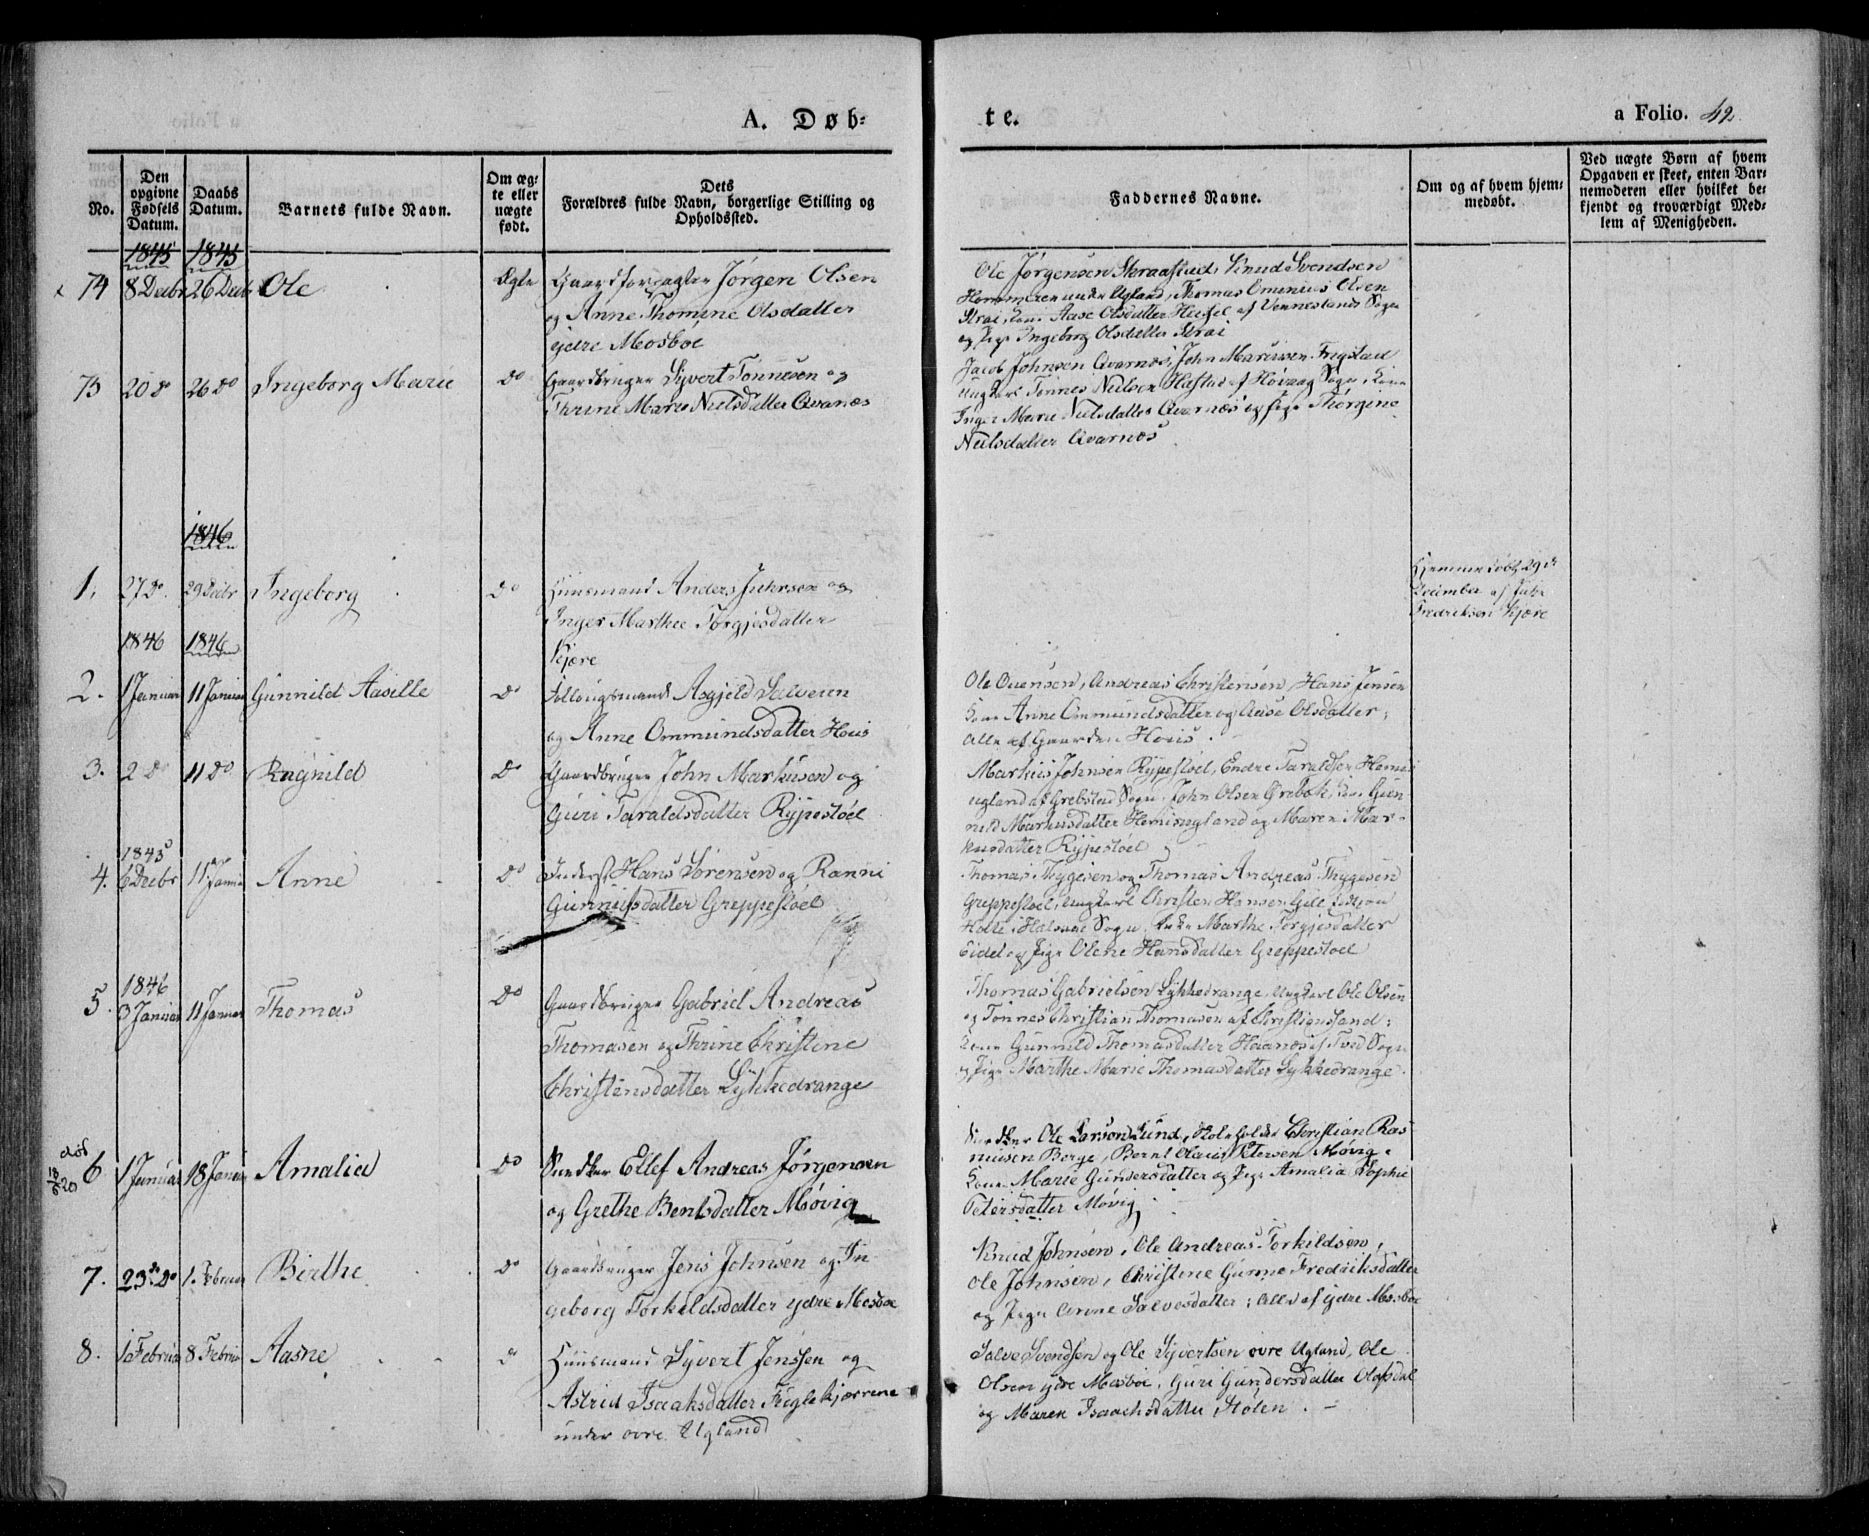 A. Døb-
te.
a Folio. 42.
No.
Den opgivne Fødsels Datum.
Daabs Datum.
Barnets fulde Navn.
Om ægte eller uægte født.
Dets Forældres fulde Navn, borgerlige Stilling og Opholdssted.
Faddernes Navne.
Om og af hvem hjemmedøbt.
Ved uægte Børn af hvem Opgaven er skeet, enten Barnemoderen eller hvilket bekjendt og troværdigt Medlem af Menigheden.
1845 1845
74 8 Decbr 26 Decbr Ole Ægte Jørgen Olsen
og Anne Thomine Olsdatter
ydre Mosboe
Ole Jørgensen Skraastad, Knud Svendsen
under Ugland, Thomas Omenius Olsen
Strai, Aase Olsdatter af Vennesland Sogn
og Pige Ingeborg Olsdatter Strai
75 20 do 26 do Ingeborg Marie do Gaardbruger Syvert Tonnesen og
Thrine Marie Nielsdatter Qvarnes
Jacob Johnsen Qvarnes, John Mariusen Frigstad
Ungkarl Tønnes Nielsen af Høivaag Sogn, Kone
Inger Marie Nielsdatter Qvarnes og Pige Thorgine
Nielsdatter Qvarnes
1846
1. 27 do. 29 Decbr Ingeborg do Huusmand Anders Juhrsen og
Inger Marthee Torgjesdatter
Kjære
Hjemmedøbt 29de
December af
Fredriksen Kjære
1846 1846
2. 1 Januar 11 Januar Gunnild Aaselle do Asgjeld
og Anne Ommundsdatter Houis
Ole Evensen, Andreas Christensen, Hans Jensen
Kone Anne Ommundsdatter og Aase Olsdatter;
Alle af Gaarden Houis.
3. 2 do 11 do Ragnild do Gaardbruger John Markusen og
Guri Taraldsdatter Rypestøel
Markus Johnsen Rypestøel, Endre Taraldsen
John Olsen
Markusdatter og Maren Mar-
kusdatter Rypestøel
1845
4. 6 Decbr 11 Januar Anne do Inderst Hans Sørensen og Ranni
Greppestøel
Thomas Thygesen og Thomas Andreas Thygesen
Greppestøel, Ungkarl Christen Hansen
Sogn, Enke Marthe Torgjesdatter
Eidet og Pige Olene Hansdatter Greppestøel
1846
5. 3 Januar 11 Januar Thomas do Gaardbruger Gabriel Andreas
Thomasen og Thrine Christine
Christensdatter Lykkedrange
Thomas Gabrielsen Lykkedrange, Ungkarl Ole Olsen
og Tønnes Christian Thomasen af Christianssand;
Kone Gunnild Thomasdatter af Tved Sogn
og Pige Marthe Marie Thomasdatter Lykkedrange.
6 1 Januar 18 Januar Amalia do Snedker Ellef Andreas Jørgensen
og Grethe Bentsdatter Møvig
Snedker Ole Larsen Lund, Christian Ras-
musen Berge, Bernt Petersen Møvig.
Kone Marie Gundersdatter og Pige Amalia Sophie
Petersdatter Møvig
7. 23de do 1. Februar Birthe do Gaardbruger Jens Johnsen og In-
geborg Torkildsdatter ydre Mosboe
Knud Johnsen, Ole Andreas Torkildsen,
Ole Johnsen, Christine Gurine Fredriksdatter
og Pige Anne Salvesdatter; Alle af ydre Mosboe
8. 1 Februar 8 Februar Aasne do Huusmand Syvert Jenssen og
Astrid Isaaksdatter
under øvre Ugland
Salve Svendsen og Ole Syvertsen øvre Ugland, Ole
Olsen ydre Mosboe, Guri Gundersdatter
og Maren Isaachsdatter Stølen.